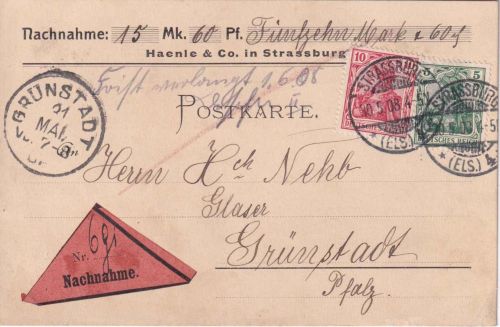 Nachnahme: 15 Mk. 60 Pf. Fünfzehn Mark & 60 ₰
Haenle & Co. in Strassburg
Frist verlangt 1.6.08
POSTKARTE.
10
5
STRASSBURG
(ELS.) 4
STRASSBURG
(ELS.) 4
DEUTSCHES REICH
GRÜNSTADT
21
MAI
Herrn Hch Nehb
Glaser
Grünstadt
Pfalz.
Nr. 691
Nachnahme.